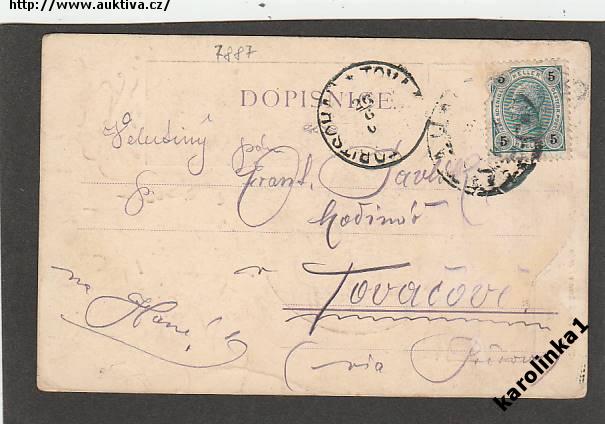 http://www.auktiva.cz/
7887
DOPISNICE.
5 HELLER 5
5 5
Velectěný pán
p. Frant. Pavlík
hodinář
v
Tovačově
na Hané
(via
karolinka1